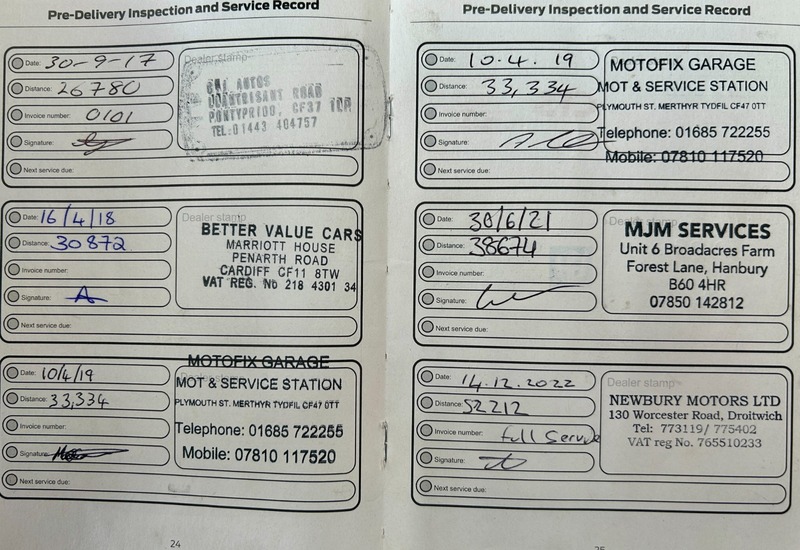 Pre-Delivery Inspection and Service Record
Date: 30-9-17
Distance: 26780
Invoice number: 0101
Signature:
Next service due:
Dealer stamp
AUTOS
ROAD
PONTYPRIDD, CF37
TEL:01443 404757
Date: 16/4/18
Distance: 30872
Invoice number:
Signature:
Next service due:
Dealer stamp
BETTER VALUE CARS
MARRIOTT HOUSE
PENARTH ROAD
CARDIFF CF11 8TW
VAT REG. No 218 4301 34
Date: 10/4/19
Distance: 33,334
Invoice number:
Signature:
Next service due:
Dealer stamp
MOTOFIX GARAGE
MOT & SERVICE STATION
PLYMOUTH ST. MERTHYR TYDFIL CF47 0TT
Telephone: 01685 722255
Mobile: 07810 117520
24
Pre-Delivery Inspection and Service Record
Date: 10.4.19
Distance: 33,334
Invoice number:
Signature:
Next service due:
MOTOFIX GARAGE
MOT & SERVICE STATION
PLYMOUTH ST. MERTHYR TYDFIL CF47 0TT
Telephone: 01685 722255
Mobile: 07810 117520
Date: 30/6/21
Distance: 38674
Invoice number:
Signature:
Next service due:
MJM SERVICES
Unit 6 Broadacres Farm
Forest Lane, Hanbury
B60 4HR
07850 142812
Date: 14.12.2022
Distance: 52212
Invoice number: full Service
Signature:
Next service due:
Dealer stamp
NEWBURY MOTORS LTD
130 Worcester Road, Droitwich
Tel: 773119/ 775402
VAT reg No. 765510233
25